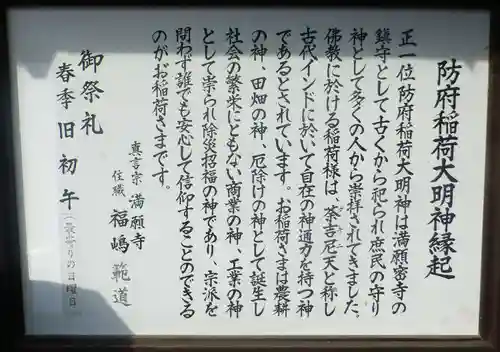 防府稲荷大明神縁起
正一位防府稲荷大明神は満願密寺の
鎮守として古くから祀られ庶民の守り
神として多くの人から崇拝されてきました。
佛教に於ける稲荷様は、荼吉尼天と称し
古代インドに於いて自在の神通力を持つ神
であるとされています。お稲荷さまは農耕
の神、田畑の神、厄除けの神として誕生し
社会の繁栄にともない商業の神、工業の神
として崇られ除災招福の神であり、宗派を
問わず誰でも安心して信仰することのできる
のがお稲荷さまです。
真言宗 満願寺
住職 福嶋 範道
御祭礼
春季 旧初午（二最寄りの日曜日）